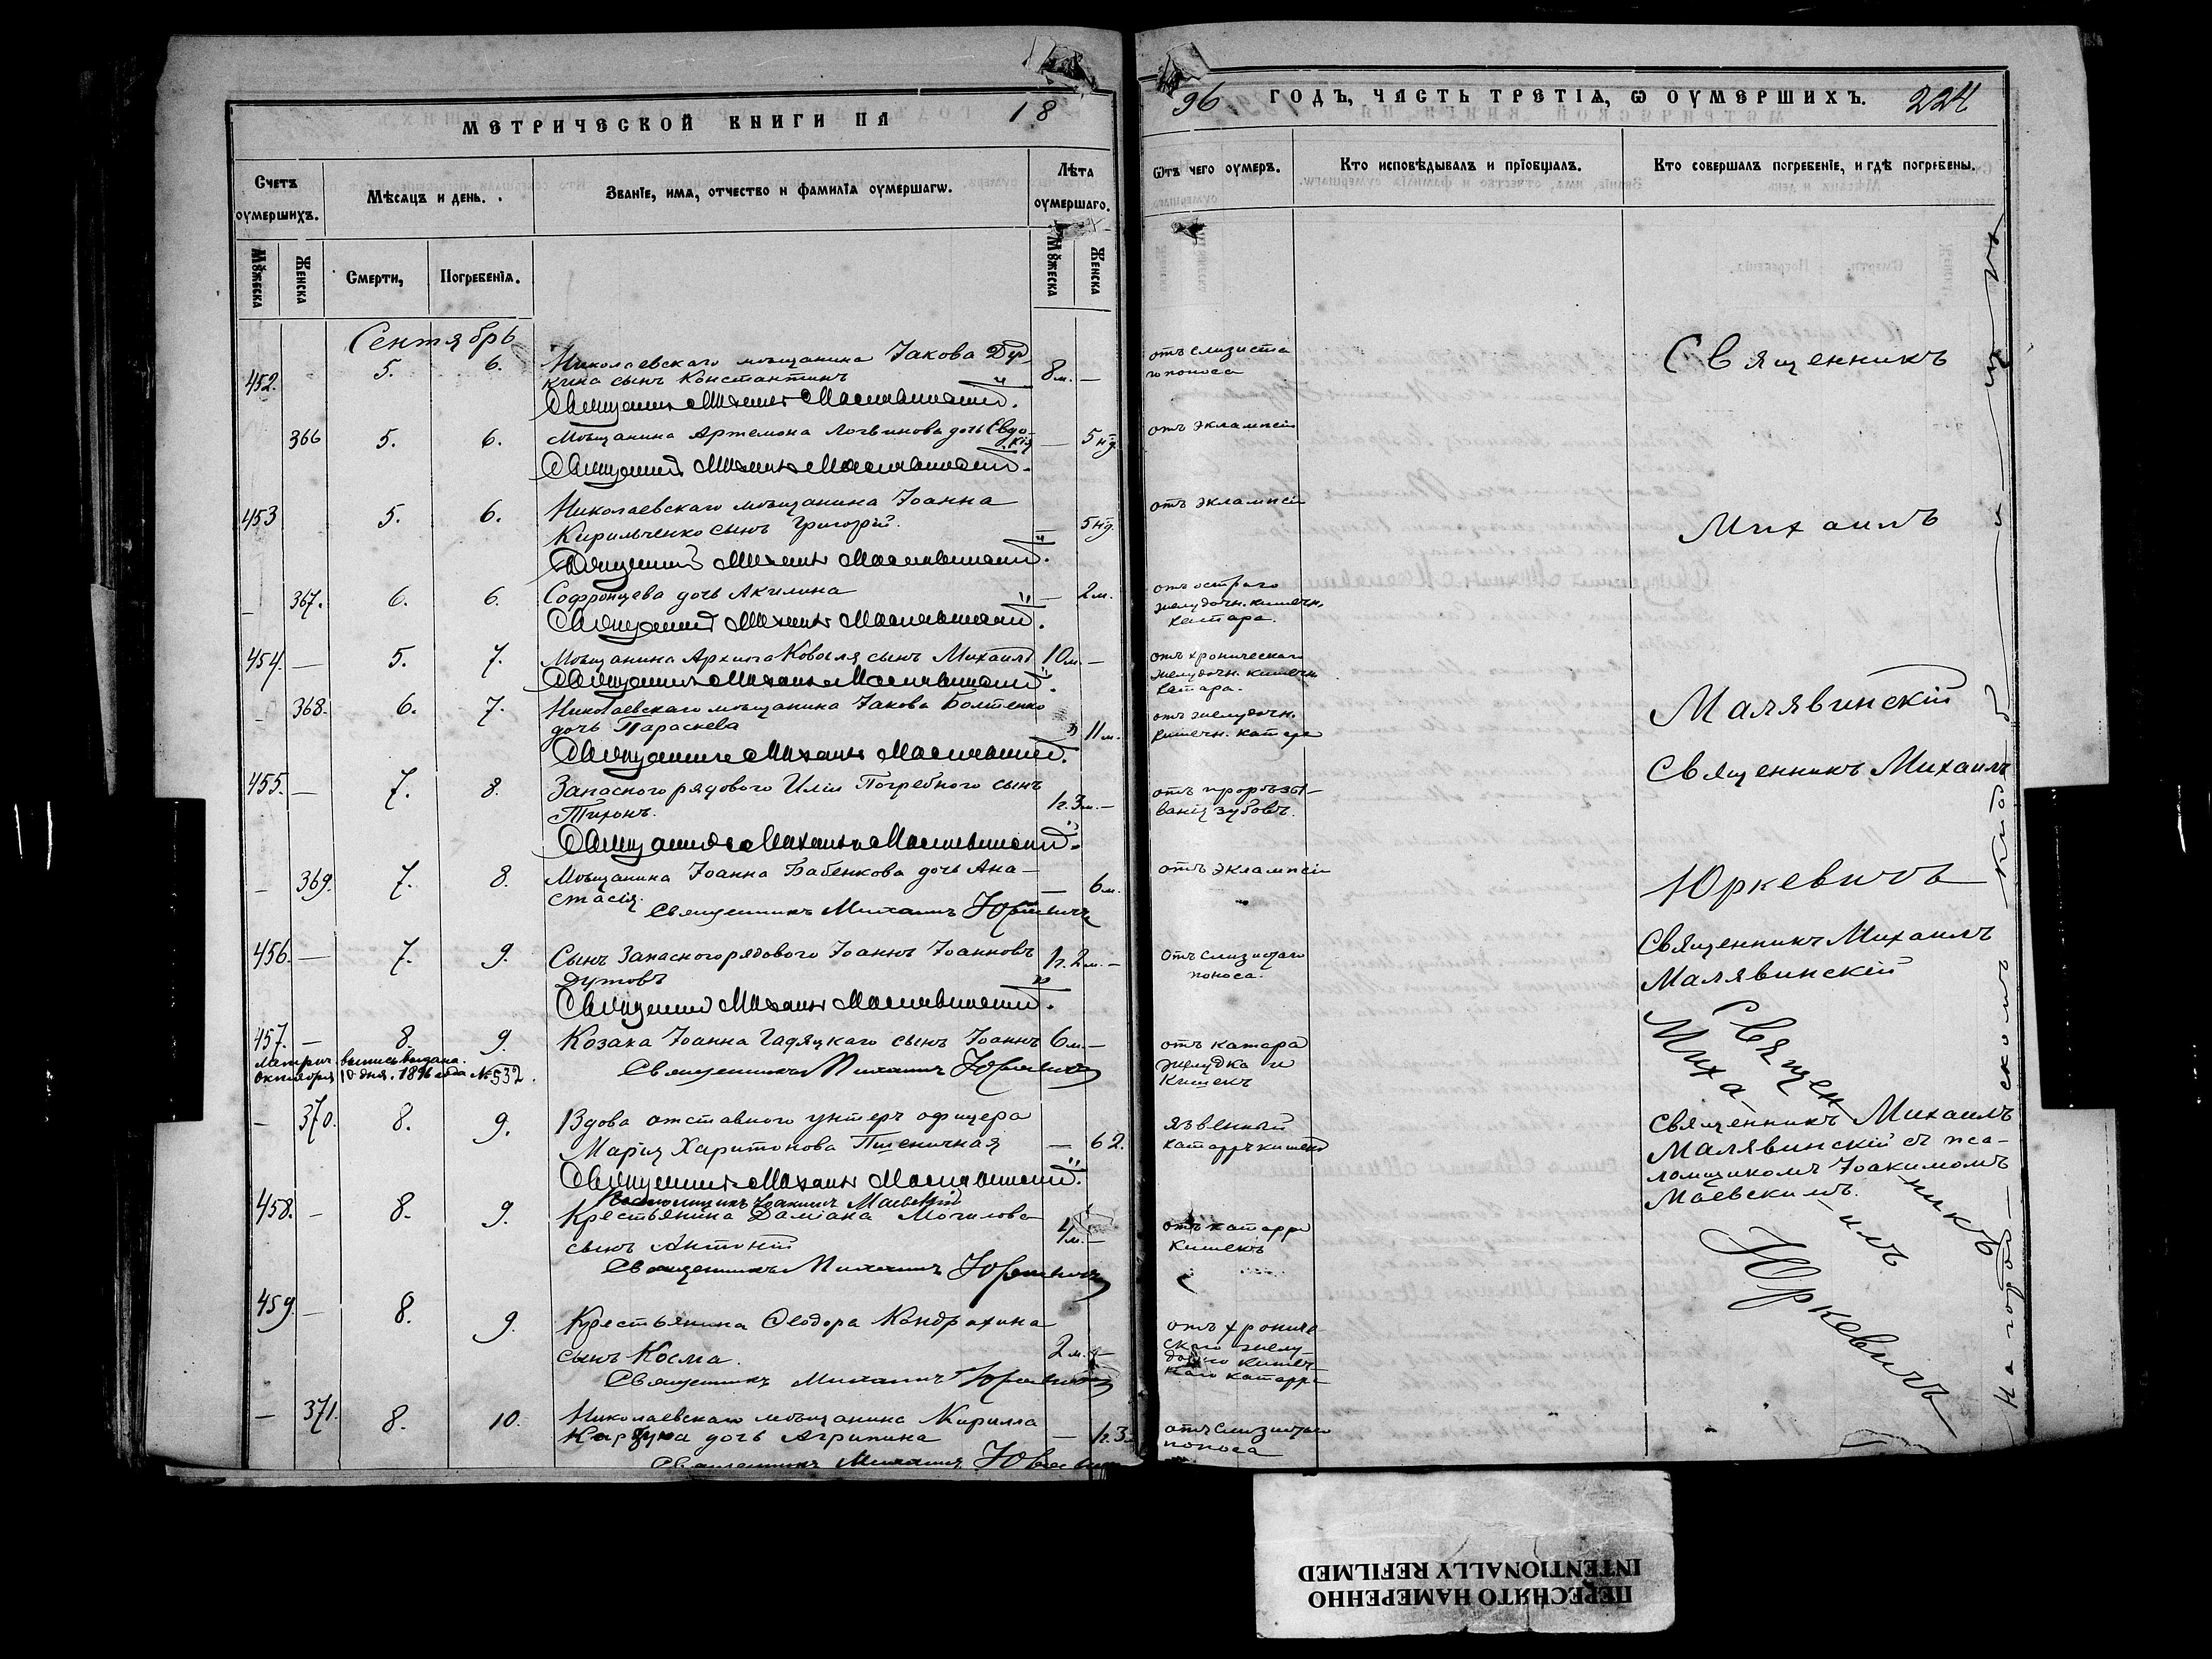 МЕТРИЧЕСКОЙ КНИГИ НА 18
Счетъ оумершихъ.
Мѣсяцъ и день.
Званіе, имя, отчество и фамиліа оумершагѡ.
Лѣта оумершаго.
Мꙋжеска
Женска
Смерти,
Погребеніа.
Мꙋжеска
Женска
Сентябрь
452. 5. 6. Николаевскаго мѣщанина Іакова
кина сынъ Константинъ 8 м. —
Священникъ Михаилъ Малявинскій.
366 5. 6. Мѣщанина Артемона Логвинова дочь Евдо-
кія — 5 нд.
Священникъ Михаилъ Малявинскій.
453 5. 6. Николаевскаго мѣщанина Іоанна
Кирильченко сынъ Григорій. — 5 нд.
Священникъ Михаилъ Малявинскій.
— 367. 6. 6. Софронцева дочь Акилина — 2 м.
Священникъ Михаилъ Малявинскій.
454. — 5. 7. Мѣщанина Архипа Коваля сынъ Михаилъ 10 м. —
Священникъ Михаилъ Малявинскій.
— 368. 6. 7. Николаевскаго мѣщанина Іакова Болтенко
дочь Параскева 11 м.
Священникъ Михаилъ Малявинскій.
455. — 7. 8. Запасного рядового Иліи Погребного сынъ
Тихонъ. 1 г. 3 м. —
Священникъ Михаилъ Малявинскій.
— 369. 7. 8. Мѣщанина Іоанна Бабенкова дочь Ана-
стасія. — 6 м.
Священникъ Михаилъ Юркевичъ
456. — 7. 9. Сынъ Запасного рядового Іоаннъ Іоанновъ
Дутовъ 1 г. 2 м. —
Священникъ Михаилъ Малявинскій.
457. — 8. 9. Козака Іоанна Гадяцкаго сынъ Іоаннъ 6 м. —
Метрич. выпись выдана.
октября 10 дня. 1896 года № 532.
Священникъ Михаилъ Юркевичъ
— 370. 8. 9. Вдова отставного унтеръ офицера
Марія Харитонова Пшеничная — 62.
Священникъ Михаилъ Малявинскій.
Псаломщикъ Іоакимъ Маевскій
458. — 8. 9. Крестьянина Даміана Могилова
сынъ Антоній 4 м. —
Священникъ Михаилъ Юркевичъ
459. — 8. 9. Крестьянина Ѳеодора Кондрахина
сынъ Косма. 2 м. —
Священникъ Михаилъ Юркевичъ
— 371. 8. 10. Николаевскаго мѣщанина Кирилла
дочь Агрипина — 1 г. 3
Священникъ Михаилъ Юркевичъ
96 ГОДЪ, ЧАСТЬ ТРЕТІА, Ѡ ОУМЕРШИХЪ. 224
Ѿтъ чего оумеръ.
Кто исповѣдывалъ и пріобщалъ.
Кто совершалъ погребеніе, и гдѣ погребены.
отъ слизиста
го поноса
отъ эклампсіи
отъ эклампсіи
отъ остраго
желудочн. кишечн.
катара.
отъ хроническаго
желудочн. кишечн.
катара.
отъ желудочн.
кишечн. катара
отъ прорѣзы-
ванія зубовъ.
отъ эклампсіи
отъ слизистаго
поноса.
отъ катара
желудка и
кишекъ
язвенный
катарръ кишекъ
отъ катарра
кишекъ
отъ хрониче
скаго желу-
дочно кишеч-
наго катарра
отъ слизистаго
поноса
Священникъ
Михаилъ
Малявинскій
Священникъ Михаилъ
Юркевичъ
Священникъ Михаилъ
Малявинскій
Священникъ
Михаилъ
Юркевичъ
Священникъ Михаилъ
Малявинскій съ пса-
ломщикомъ Іоакимомъ
Маевскимъ.
На городскомъ кладбищѣ
ПЕРЕСНЯТО НАМЕРЕННО
INTENTIONALLY REFILMED